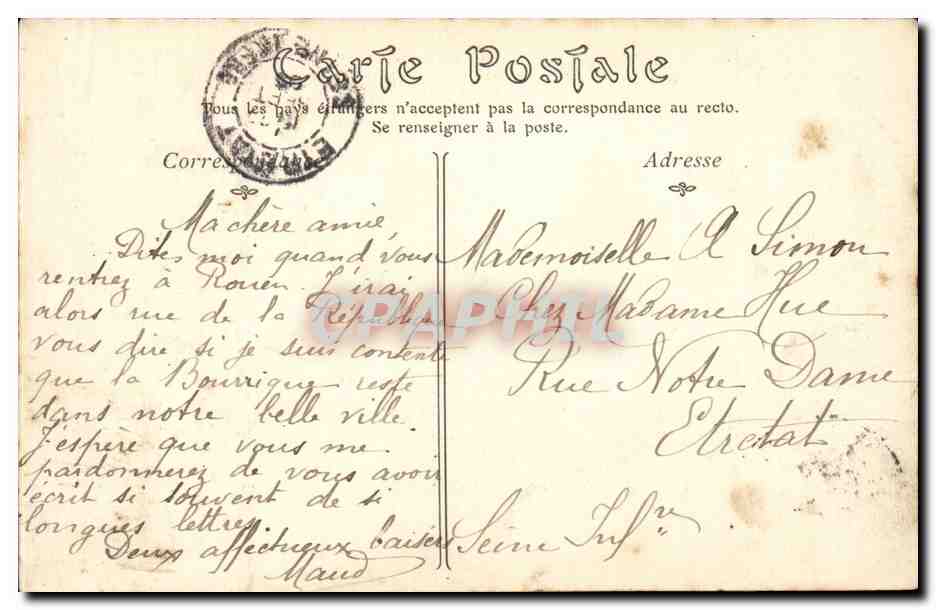 Carte Postale
Tous les pays étrangers n'acceptent pas la correspondance au recto.
Se renseigner à la poste.
Correspondance
Ma chère amie,
Dites moi quand vous
rentrez à Rouen. J'irai
alors rue de la République
vous dire si je suis contente
que la Bourrique reste
dans notre belle ville.
J'espère que vous me
pardonnerez de vous avoir
écrit si souvent de si
longues lettres.
Deux affectueux baisers
Maud
Adresse
Mademoiselle A Simon
Chez Madame Hue
Rue Notre Dame
Etretat
Seine Infre
CPAPHIL
ETRETAT